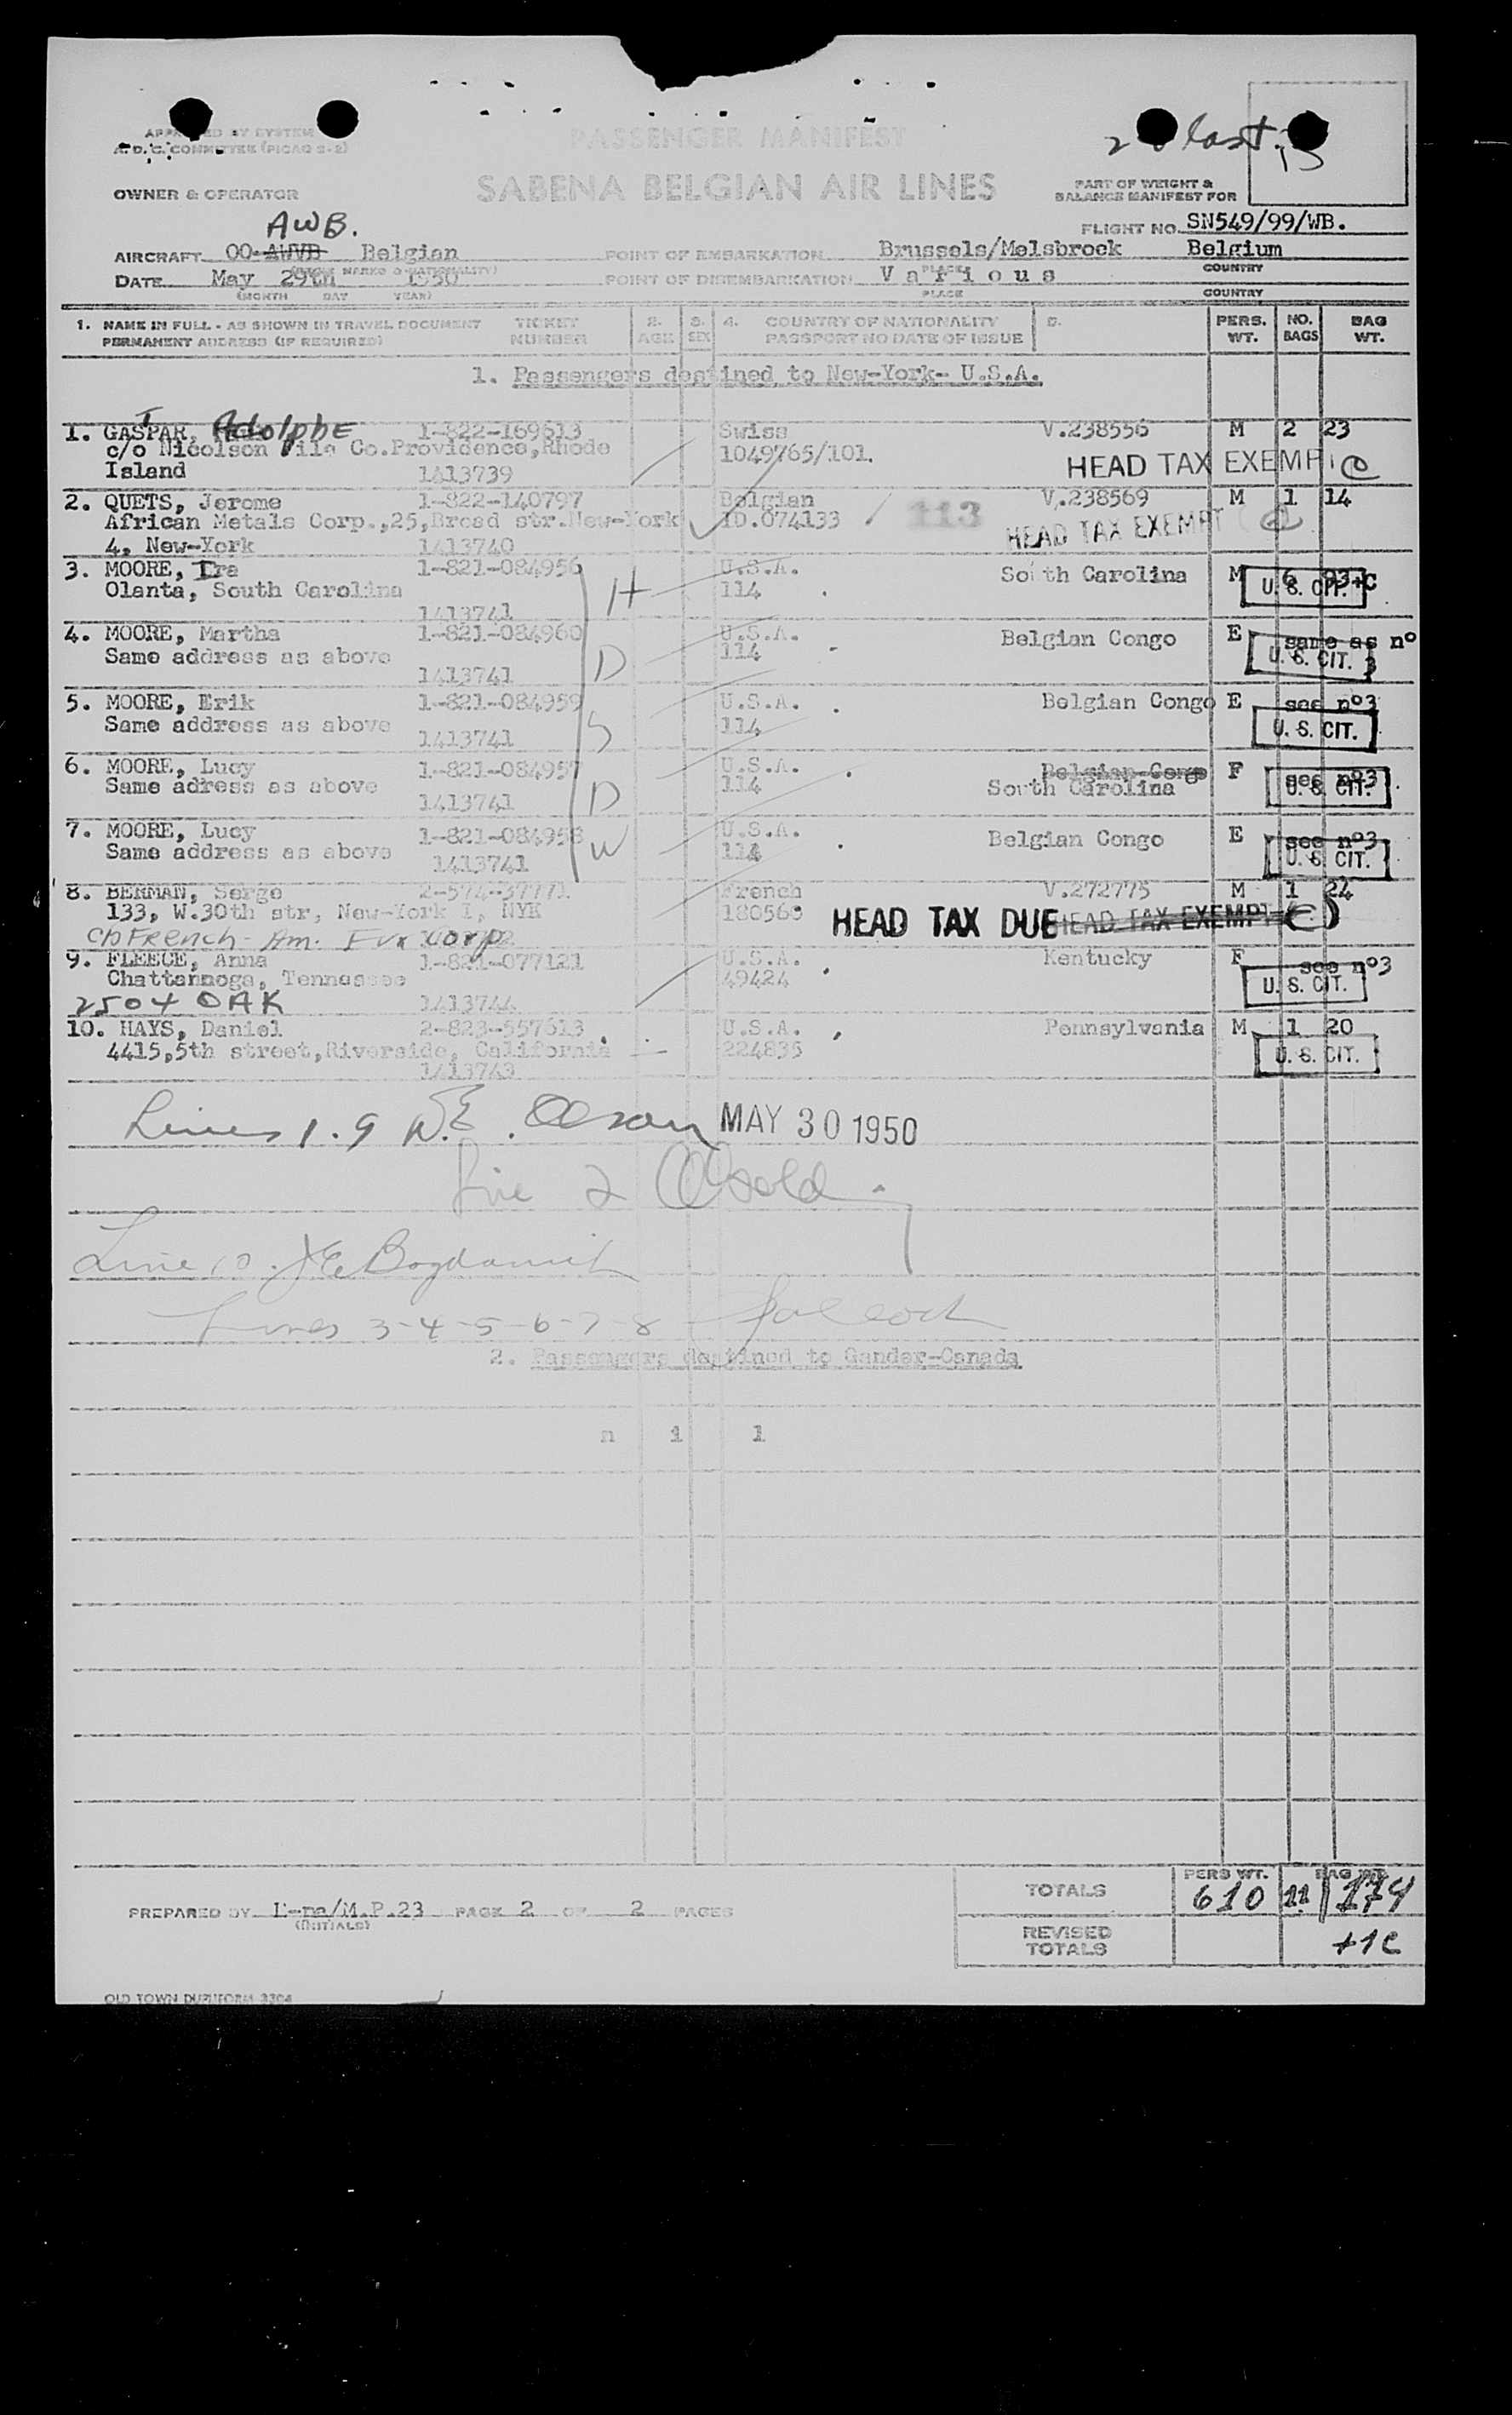 PASSENGER MANIFEST
SABENA BELGIAN AIR LINES
OWNER & OPERATOR
PART OF WEIGHT &
BALANCE MANIFEST FOR
FLIGHT NO. SN549/99/WB.
AWB.
AIRCRAFT OO-AWVB Belgian
POINT OF EMBARKATION Brussels/Melsbroek Belgium
PLACE COUNTRY
DATE May 29th 1950
(MONTH DAY YEAR)
POINT OF DISEMBARKATION V a r i o u s
PLACE COUNTRY
1. NAME IN FULL - AS SHOWN IN TRAVEL DOCUMENT
PERMANENT ADDRESS (IF REQUIRED)
TICKET NUMBER
2. AGE
3. SEX
4. COUNTRY OF NATIONALITY
PASSPORT NO DATE OF ISSUE
5.
PERS. WT.
NO. BAGS
BAG WT.
1. Passengers destined to New-York- U.S.A.
1. GASPAR, Adolphe 1-822-169613 Swiss V.238556 M 2 23
c/o Nicolson File Co.Providence,Rhode 1049765/101.
Island 1413739 HEAD TAX EXEMPT
2. QUETS, Jerome 1-822-140797 Belgian V.238569 M 1 14
African Metals Corp.,25,Broad str.New-York ID.074133 113
4, New-York 1413740 HEAD TAX EXEMPT
3. MOORE, Ira 1-821-084956 U.S.A. South Carolina M 6 93+C
Olanta, South Carolina H 114 U. S. CIT.
1413741
4. MOORE, Martha 1-821-084960 U.S.A. Belgian Congo E same as nº
Same address as above D 114 U. S. CIT. 3
1413741
5. MOORE, Erik 1-821-084959 U.S.A. Belgian Congo E see nº3
Same address as above S 114 U. S. CIT.
1413741
6. MOORE, Lucy 1-821-084957 U.S.A. Belgian Congo F see nº3
Same adress as above D 114 South Carolina U. S. CIT.
1413741
7. MOORE, Lucy 1-821-084958 U.S.A. Belgian Congo E see nº3
Same address as above W 114 U. S. CIT.
1413741
8. BERMAN, Serge 2-574-37771 French V.272775 M 1 24
133, W.30th str, New-York 1, NYK 180563 HEAD TAX DUE HEAD TAX EXEMPT
c/o French-Am. Fur Corp
9. FLEECE, Anna 1-821-077121 U.S.A. Kentucky F see nº3
Chattannoga, Tennessee 49424 U. S. CIT.
2504 OAK 1413744
10. HAYS, Daniel 2-823-557613 U.S.A. Pennsylvania M 1 20
4415,5th street,Riverside, California 224835 U. S. CIT.
1413743
Lines 1.9 W.E. Olson MAY 30 1950
Line 2
Line 10.
Lines 3-4-5-6-7-8
2. Passengers destined to Gander-Canada
n i l
TOTALS
PERS WT. BAG WT.
610 11 174
REVISED
TOTALS
+1C
PREPARED BY
(INITIALS)
PAGE 2 OF 2 PAGES
OLD TOWN DUPLIFORM 3304